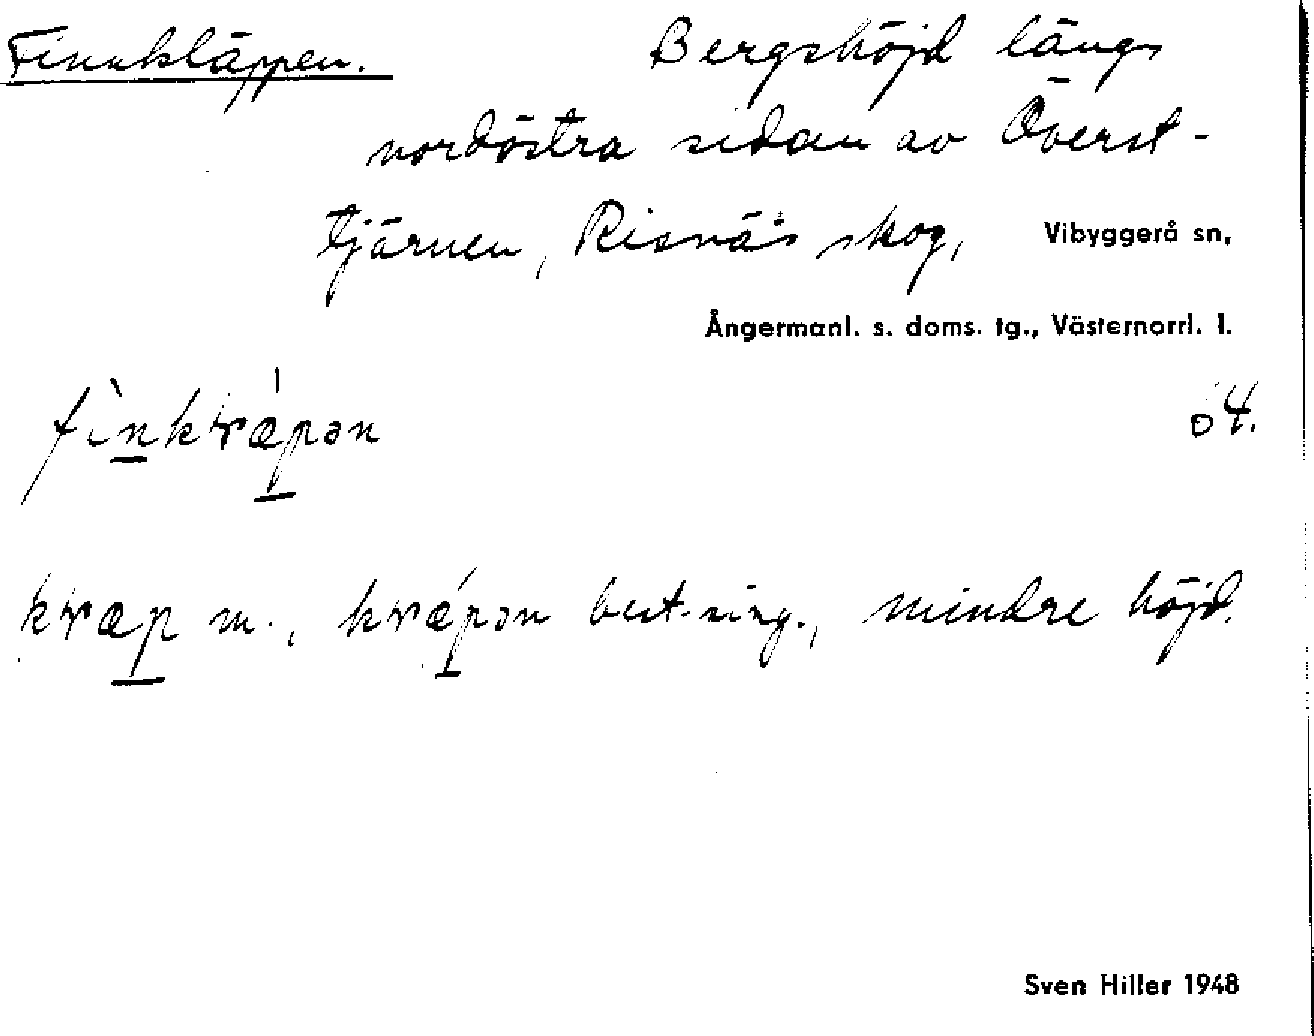 Finnkläppen. Bergshöjd längs
nordöstra sidan av Överst-
tjärnen, Risnäs skog, Vibyggerå sn,
Ångermanl. s. doms. tg., Västernorrl. l.
64.
m., best. sing., mindre höjd.
Sven Hiller 1948